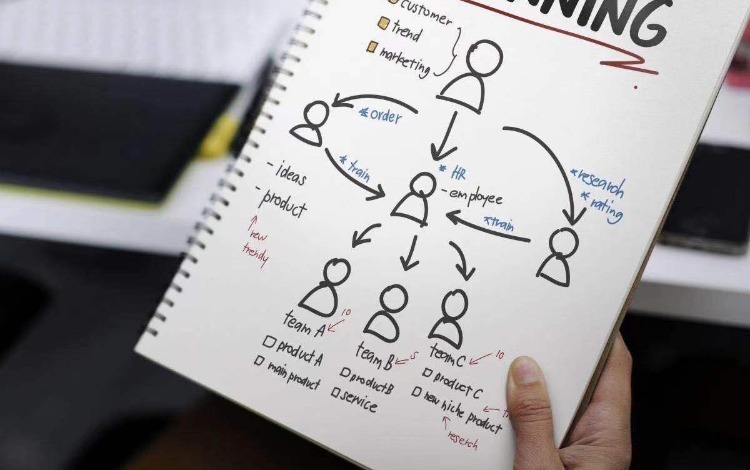 NING
customer
trend
marketing
*order
*research
*rating
*train
* HR
- employee
*train
- ideas
- product
new
trendy
team A
10
product A
main product
team B
5
product B
service
team C
10
product C
new niche product
reserch